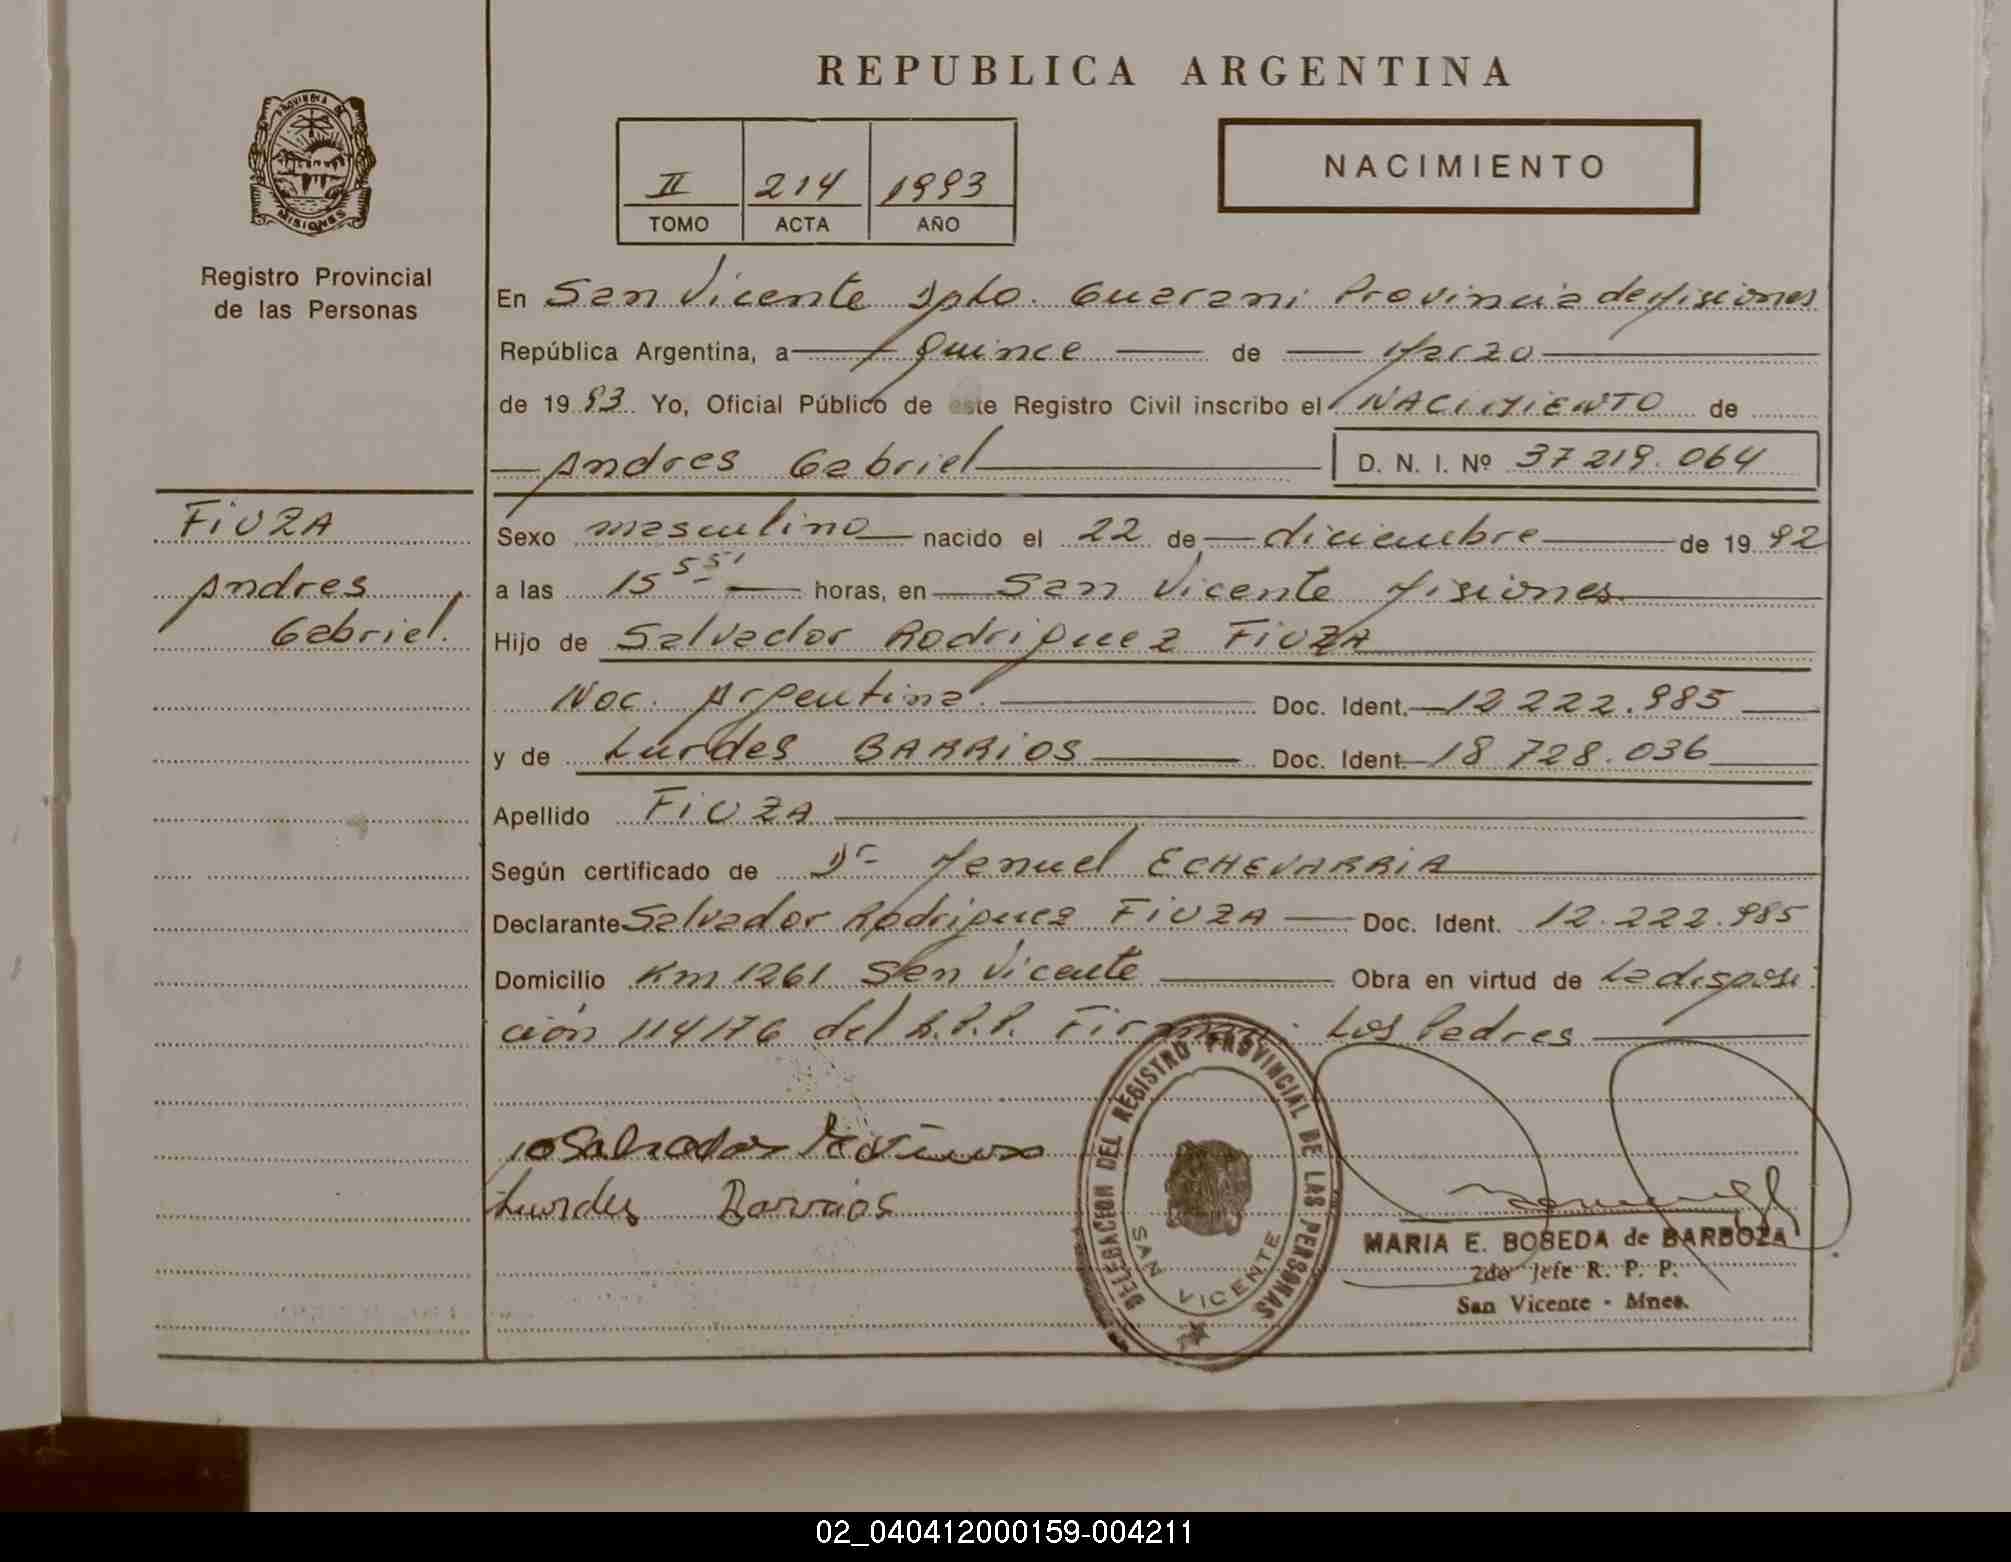 REPUBLICA ARGENTINA
PROVINCIA DE
MISIONES
Registro Provincial
de las Personas
II 214 1993
TOMO ACTA AÑO
NACIMIENTO
En San Vicente Dpto. Guarani Provincia de Misiones
República Argentina, a Quince de Marzo
de 1993. Yo, Oficial Público de este Registro Civil inscribo el NACIMIENTO de
Andres Gabriel D. N. I. Nº 37 219. 064
FIUZA
Andres
Gabriel.
Sexo masculino nacido el 22 de diciembre de 1992
a las 15 55' horas, en San Vicente Misiones
Hijo de Salvador Rodriguez FIUZA
Nac. Argentina. Doc. Ident. 12 222.985
y de Lurdes BARRIOS Doc. Ident. 18 728.036
Apellido FIUZA
Según certificado de Dr Manuel ECHEVARRIA
Declarante Salvador Rodriguez FIUZA Doc. Ident. 12.222.985
Domicilio Km 1261 San Vicente Obra en virtud de La disposi
ción 114/76 del R.P.P. Firman: Los Padres
Salvador
Lurdes Barrios
DELEGACION DEL REGISTRO PROVINCIAL DE LAS PERSONAS
SAN VICENTE
MARIA E. BOBEDA de BARBOZA
2do Jefe R. P. P.
San Vicente - Mnes.
02_040412000159-004211